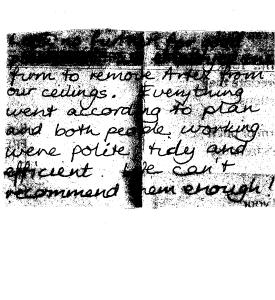 firm to remove Artex from
our ceilings. Everything
went according to plan
and both people working
were polite tidy and
efficient. We can't
recommend them enough!